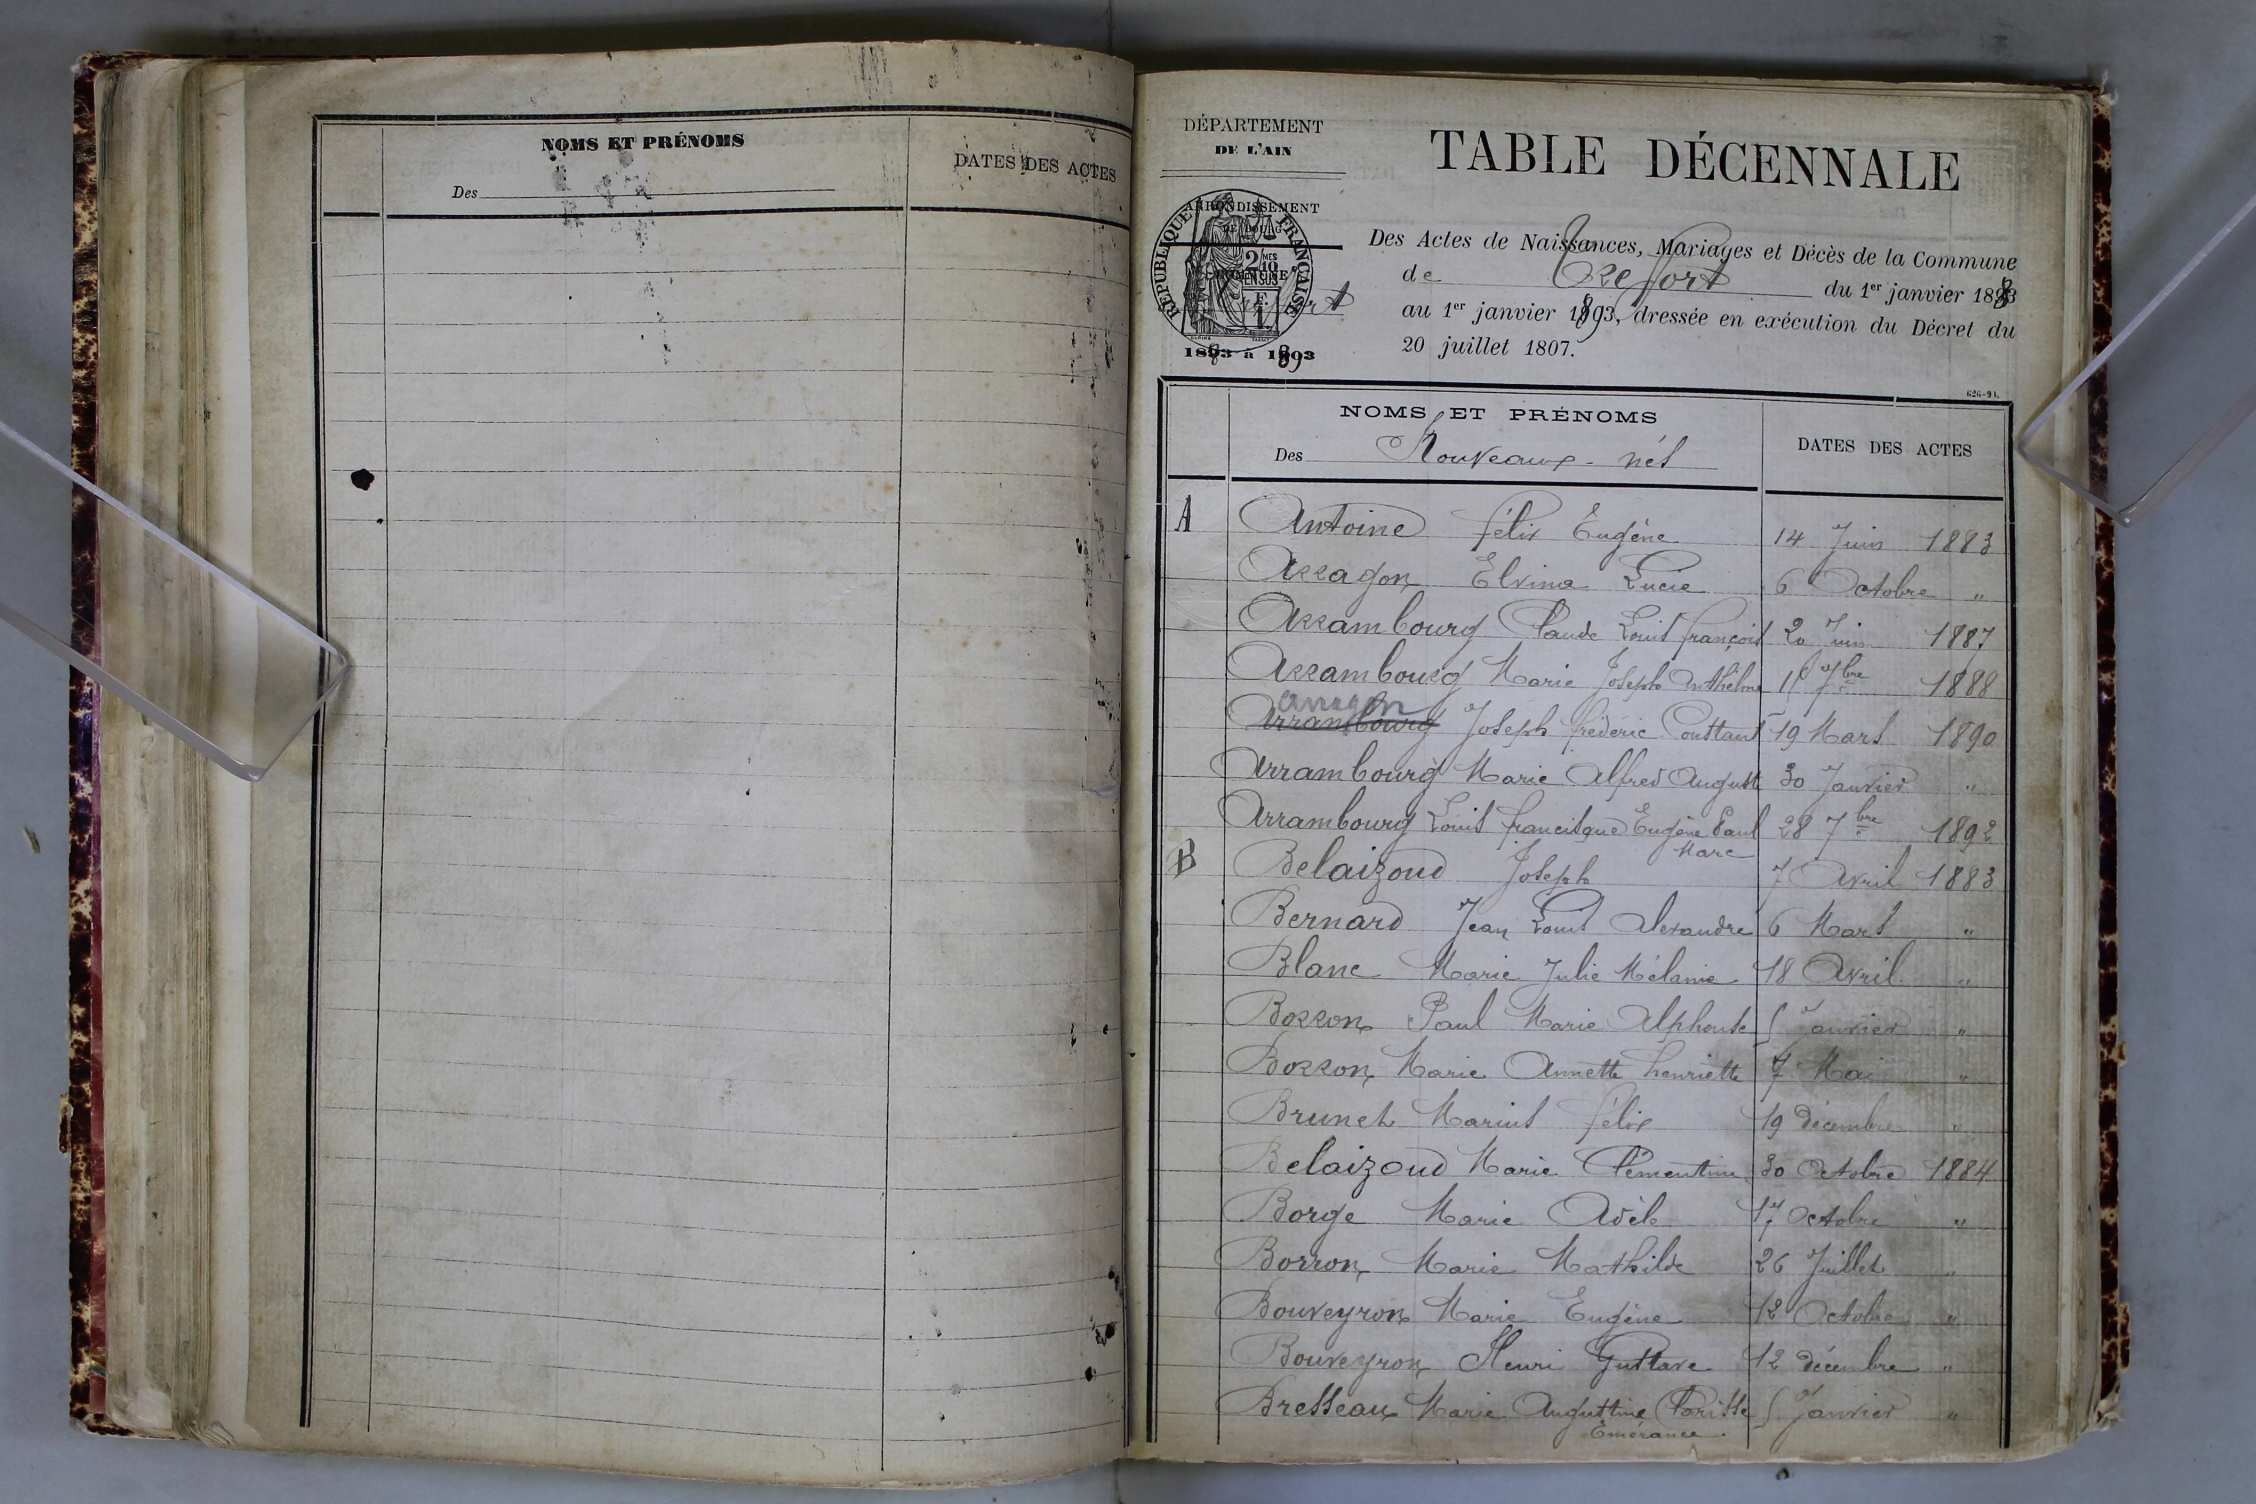 NOMS ET PRÉNOMS
Des
DATES DES ACTES
DÉPARTEMENT
DE L'AIN
ARRONDISSEMENT
RÉPUBLIQUE FRANÇAISE
2/10 MES
EN SUS
1 F.
1883 à 1893
TABLE DÉCENNALE
Des Actes de Naissances, Mariages et Décès de la Commune
de Treffort du 1er janvier 1883
au 1er janvier 1893, dressée en exécution du Décret du
20 juillet 1807.
626-94.
NOMS ET PRÉNOMS
Des Nouveaux-nés
DATES DES ACTES
A Antoine Félix Eugène 14 Juin 1883
Arragon Elvina Lucie 6 Octobre "
Arrambourg Claude Louis françois 20 Juin 1887
Arrambourg Marie Joseph Anthelme 15 7bre 1888
arragon
Arrambourg Joseph frédéric Constant 19 Mars 1890
Arrambourg Marie Alfred Auguste 30 Janvier "
Arrambourg Louis francisque Eugène Paul 28 7bre 1892
Marc
B Belaizoud Joseph 7 Avril 1883
Bernard Jean Louis Alexandre 6 Mars "
Blanc Marie Julie Mélanie 18 Avril "
Borron Paul Marie Alphonse 5 Janvier "
Borron Marie Annette henriette 7 Mai "
Brunet Marius félix 19 décembre "
Belaizoud Marie Clémentine 30 Octobre 1884
Borge Marie Adèle 17 Octobre "
Borron Marie Mathilde 26 Juillet "
Bouveyron Marie Eugène 12 Octobre "
Bouveyron Henri Gustave 12 décembre "
Bresseaux Marie Augustine Clarisse 5 Janvier "
Emérance